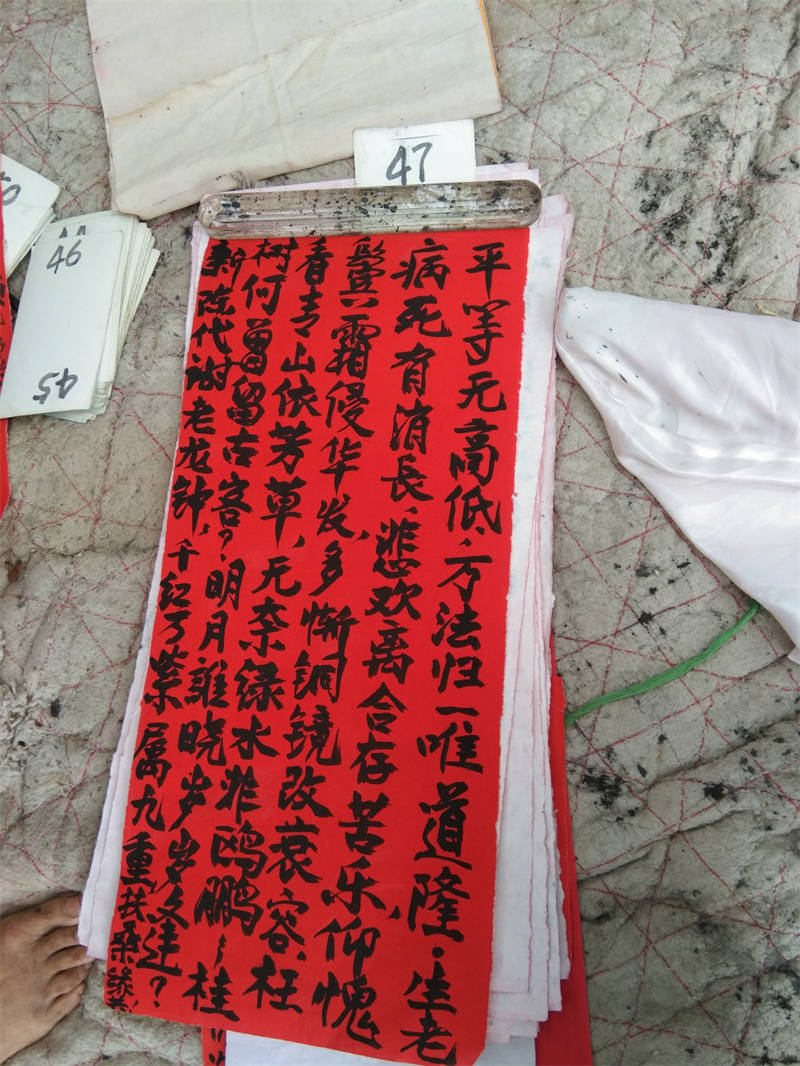 47
46
45
平等无高低，万法归一唯道隆。生老
病死有消長，悲欢离合存苦乐，仰愧
鬓霜侵华发，多惭铜镜改衰容。枉
香青山依芳草，无奈绿水非鸥鹏，桂
树何曾留古客？明月誰晓岁岁
新陈代谢老龙钟，千红万紫属九重
扶桑缘